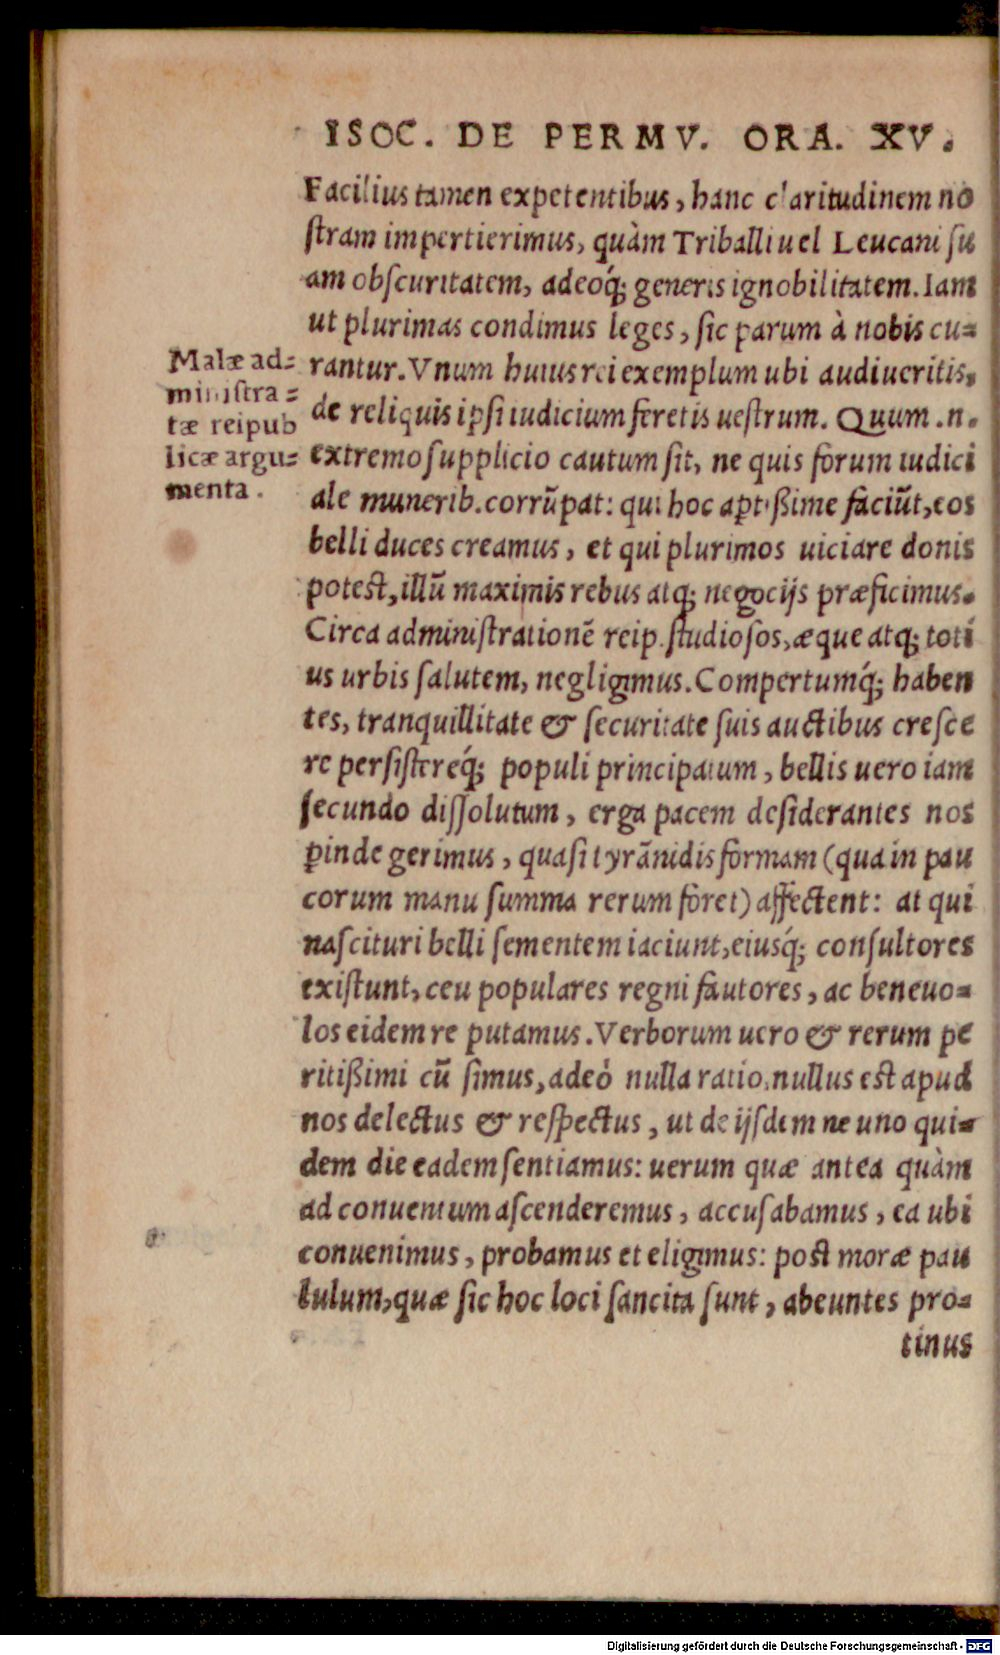 ISOC. DE PERMV. ORA. XV.
Facilius tamen expetentibus, hanc claritudinem no
ſtram impertierimus, quàm Triballi uel Leucani ſu
am obſcuritatem, adeoq́; generis ignobilitatem. Iam
ut plurimas condimus leges, ſic parum à nobis cu⸗
rantur. Vnum huius rei exemplum ubi audiueritis,
de reliquis ipſi iudicium feretis ueſtrum. Quum .n.
extremo ſupplicio cautum ſit, ne quis forum iudici
ale munerib. corrũpat: qui hoc aptißime faciũt, eos
belli duces creamus, et qui plurimos uiciare donis
poteſt, illũ maximis rebus atq; negocijs præficimus.
Circa adminiſtrationẽ reip. ſtudioſos, æque atq; toti
us urbis ſalutem, negligimus. Compertumq́; haben
tes, tranquillitate & ſecuritate ſuis auctibus creſce
re perſiſtereq́; populi principatum, bellis uero iam
ſecundo diſſolutum, erga pacem deſiderantes nos
ꝑinde gerimus, quaſi tyrãnidis formam (qua in pau
corum manu ſumma rerum foret) affectent: at qui
naſcituri belli ſementem iaciunt, eiusq́; conſultores
exiſtunt, ceu populares regni fautores, ac beneuo⸗
los eidem re putamus. Verborum uero & rerum pe
ritißimi cũ ſimus, adeò nulla ratio, nullus eſt apud
nos delectus & reſpectus, ut de ijſdem ne uno qui⸗
dem die eadem ſentiamus: uerum quæ antea quàm
ad conuentum aſcenderemus, accuſabamus, ea ubi
conuenimus, probamus et eligimus: poſt moræ pau
lulum, quæ ſic hoc loci ſancita ſunt, abeuntes pro⸗
tinus
Malæ ad⸗
miniſtra⸗
tæ reipub
licæ argu⸗
menta.
Digitalisierung gefördert durch die Deutsche Forschungsgemeinschaft - DFG